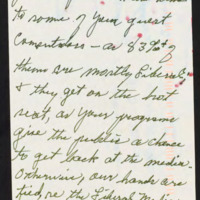 to some of your guest
Comentators – as 83% of
them are mostly Liberal
& they get on the hot
seat, as your programe
give the public a chance
to get back at the media.
Otherwise, our hands are
tied, re the Liberal Media